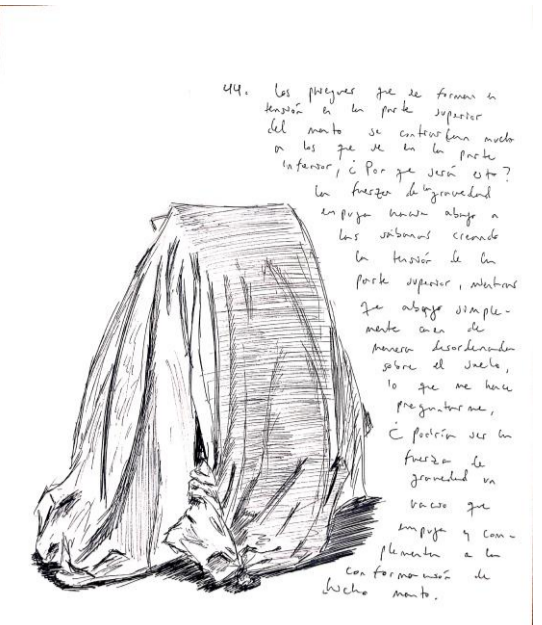 44. Los pliegues que se forman en
tensión en la parte superior
del manto se contraponen mucho
a los que se en la parte
inferior, ¿Por qe serán esto?
la fuerza de la gravedad
empuja hacia abajo a
las sábanas creando
la tensión de la
parte superior, mientras
qe abajo simple-
mente caen de
manera desordenada
sobre el suelo,
lo que me hace
preguntarme,
¿ podría ser la
fuerza de
gravedad un
vacío que
empuja y com-
plementa a la
conformación de
dicho manto.